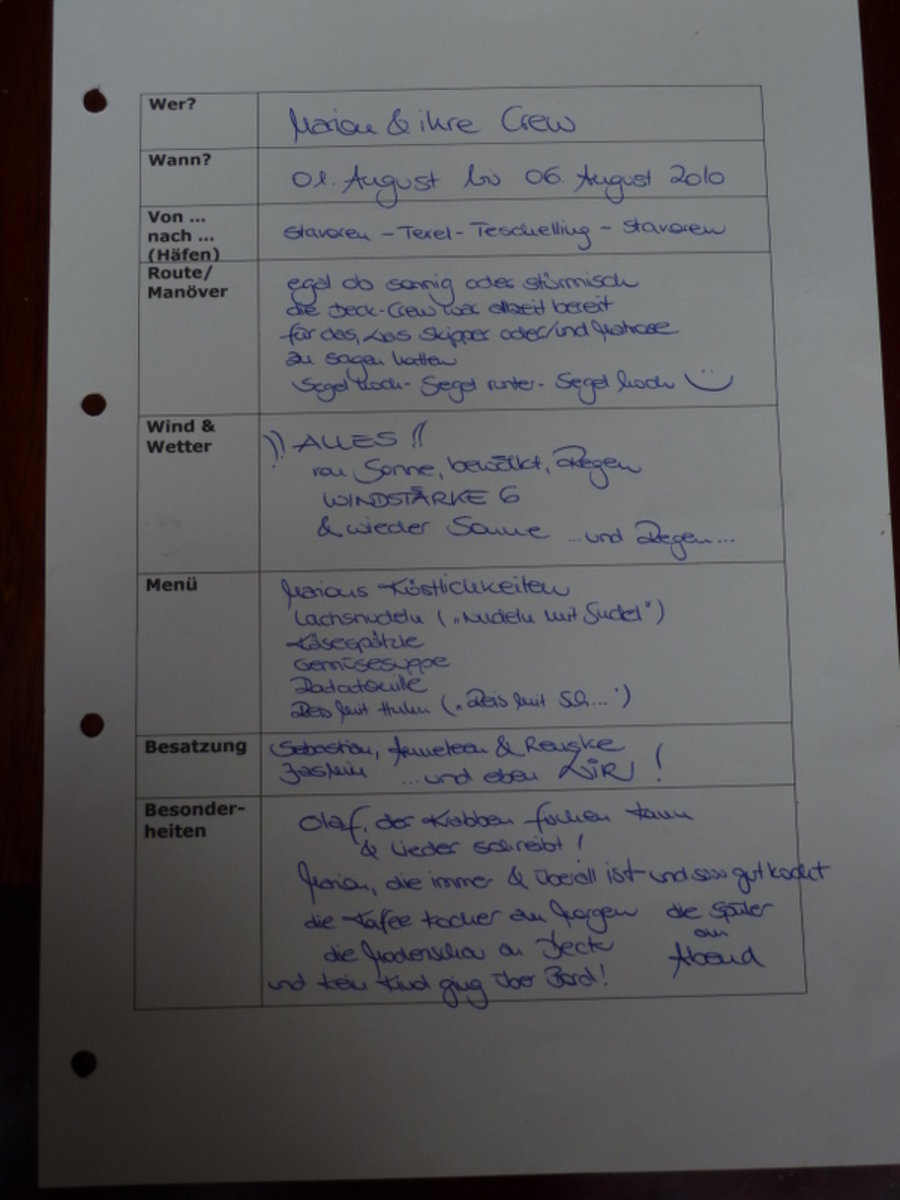 Wer?
Marion & ihre Crew
Wann?
01. August bis 06. August 2010
Von ...
nach ...
(Häfen)
Stavoren - Texel - Teschelling - Stavoren
Route/
Manöver
egal ob sonnig oder stürmisch
die Deck-Crew war allzeit bereit
für das, was Skipper oder/und Matrose
zu sagen hatten
Segel hoch - Segel runter - Segel hoch
Wind &
Wetter
!! ALLES !!
von Sonne, bewölkt, Regen
WINDSTÄRKE 6
& wieder Sonne ... und Regen ...
Menü
Marions Köstlichkeiten
Lachsnudeln („Nudeln mit Sudel")
Käsespätzle
Gemüsesuppe
Ratatouille
Reis mit Huhn („Reis mit Sch...")
Besatzung
Sebastian, & Renske
... und eben WIR!
Besonder-
heiten
Olaf, der Krabben fischen kann
& Lieder schreibt!
Marion, die immer & überall ist und soo gut kocht
die Kaffee Kocher am Morgen die Spüler
am
die Modenschau an Deck Abend
und kein Kind ging über Bord!